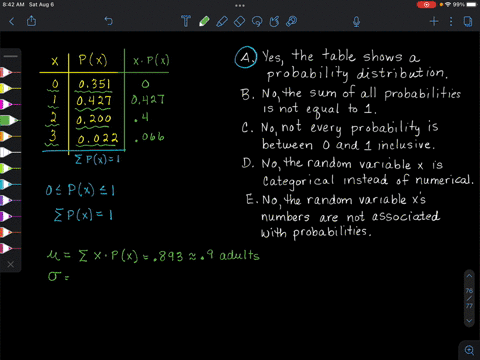 8:42 AM Sat Aug 6
52%
x P(x) x · P(x)
0 0.351 0
1 0.427 0.427
2 0.200 .4
3 0.022 .066
Σ P(x) = 1
0 ≤ P(x) ≤ 1
Σ P(x) = 1
μ = Σ x · P(x) = .893 ≈ .9 adults
σ =
A. Yes, the table shows a
probability distribution.
B. No, the sum of all probabilities
is not equal to 1.
C. No, not every probability is
between 0 and 1 inclusive.
D. No, the random variable x is
categorical instead of numerical.
E. No, the random variable x's
numbers are not associated
with probabilities.
76
77